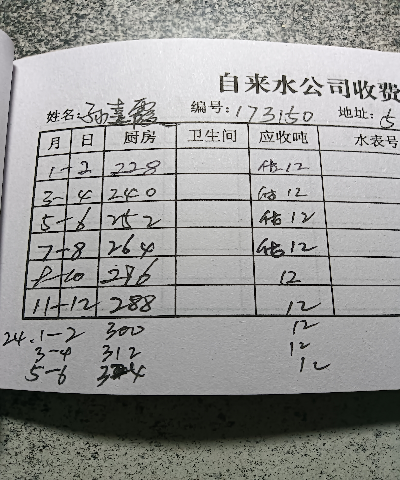 自来水公司收费
姓名:孙喜霞 编号:173150 地址:5
月 日 厨房 卫生间 应收吨 水表号
1-2 228 估12
3-4 240 估12
5-6 252 估12
7-8 264 估12
9-10 276 12
11-12 288 12
24.1-2 300 12
3-4 312 12
5-6 324 12